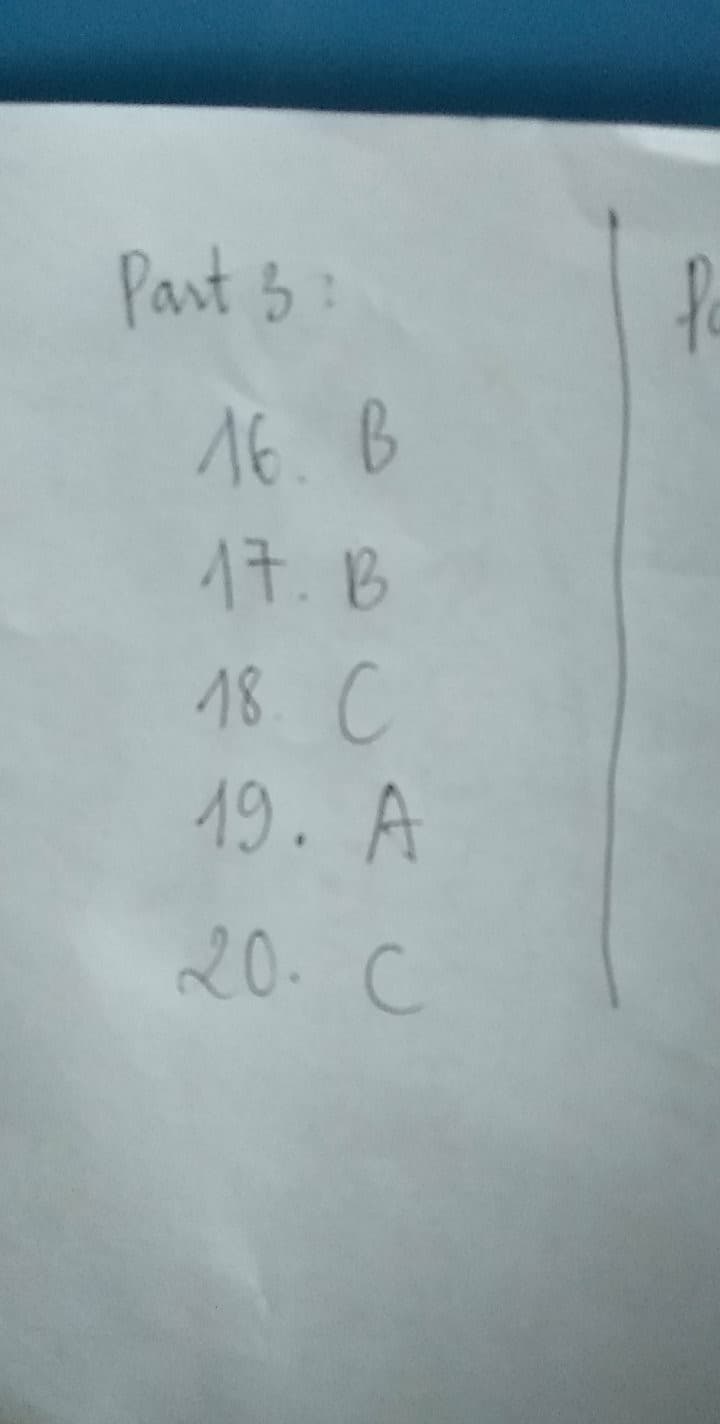 Part 3:
16. B
17. B
18. C
19. A
20. C